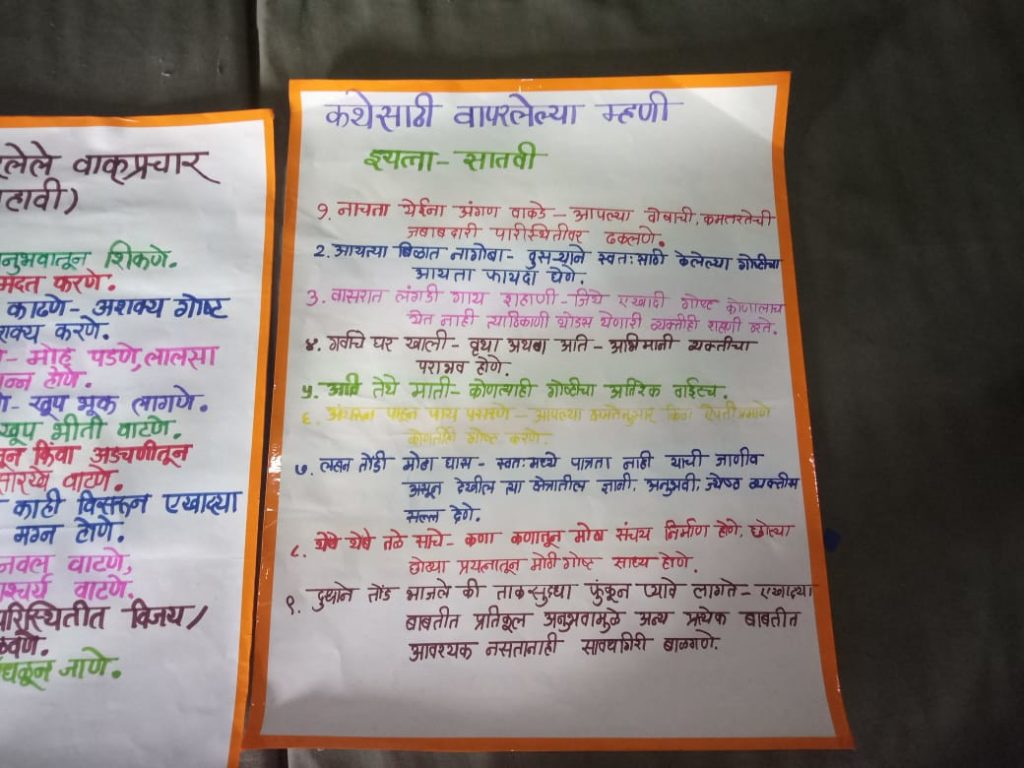 लेले वाक्प्रचार
हावी)
नुभवातून शिकणे.
मदत करणे.
काढणे- अशक्य गोष्ट
शक्य करणे.
- मोह पडणे, लालसा
न्न होणे.
णे- खूप भूक लागणे.
खूप भीती वाटणे.
तून किंवा अडचणीतून
सारखे वाटणे.
काही विसरून एखाद्या
मग्न होणे.
नवल वाटणे,
श्चर्य वाटणे.
परिस्थितीत विजय/
ळवणे.
घळून जाणे.
कथेसाठी वापरलेल्या म्हणी
इयत्ता- सातवी
१. नाचता येईना अंगण वाकडे - आपल्या दोषाची, कमतरतेची
जबाबदारी परिस्थितीवर ढकलणे.
2. आयत्या बिळात नागोबा- दुसऱ्याने स्वतःसाठी केलेल्या गोष्टीचा
आयता फायदा घेणे.
3. वासरात लंगडी गाय शहाणी - जिथे एखादी गोष्ट कोणालाच
येत नाही त्याठिकाणी थोडस येणारी व्यक्तीही शहाणी ठरते.
४. गर्वाचे घर खाली- वृथा अथवा अति - अभिमानी व्यक्तीचा
पराभव होणे.
५. अति तेथे माती- कोणत्याही गोष्टीचा अतिरेक वाईटच.
६. अंथरूण पाहून पाय पसरणे - आपल्या
कोणतीही गोष्ट करणे.
७. लहान तोंडी मोठा घास - स्वतःमध्ये पात्रता नाही याची जाणीव
असून देखील त्या क्षेत्रातील ज्ञानी, अनुभवी, ज्येष्ठ व्यक्तीस
सल्ला देणे.
८. थेंबे थेंबे तळे साचे- कणा कणातून मोठा संचय निर्माण होणे, छोट्या
छोट्या प्रयत्नातून मोठी गोष्ट साध्य होणे.
९. दुधाने तोंड भाजले की ताकसुद्धा फुंकून प्यावे लागते - एखाद्या
बाबतीत प्रतिकूल अनुभवामुळे अन्य प्रत्येक बाबतीत
आवश्यक नसतानाही सावधगिरी बाळगणे.